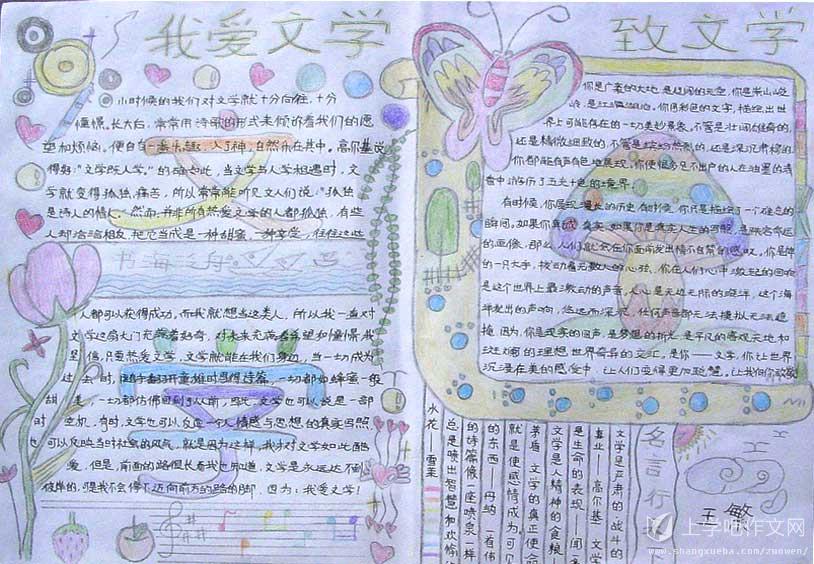 我爱文学
小时候的我们对文学就十分向往,十分
憧憬。长大白,常常用诗歌的形式来倾诉着我们的愿
望和烦恼。便自 入了神,自然乐在其中。高尔基说
得好:"文学既人学。"的确如此,当文学与人学相遇时,文
学就变得孤独,痛苦,所以常常能听见文人们说:"孤独
是诗人的情人。"然而,并非所有热爱文学的人都孤独,有些
人却恰恰相反,把它当成是一种甜蜜,一种交堂,往往这些
书海一舟
人都可以获得成功。而我就想当这类人,所以我一直对
文学这扇大门充满着好奇,对未来充满着希望和憧憬。我
坚信,只要热爱文学,文学就能在我们身边,当一切成为
过去时,随手翻开童稚时思想诗篇,一切都如蜂蜜一般
甜美,一切都仿佛回到了从前,因此,文学也可以说是一部
时空机,有时,文学也可以反应一个人情感与思想的真实写照,
也可以反映当时社会的风气,就是因为这样,我才对文学如此酷
爱,但是,前面的路很长看我也知道,文学是永远达不到
彼岸的,可是我不会停下迈向前方的路的脚,因为:我爱文学!
致文学
你是广袤的大地,是辽阔的天空,你是崇山峻
岭,是江河湖泊。你用彩色的文字,描绘出世
界上可能存在的一切美妙景象,不管是壮阔雄奇的,
还是精微细致的,不管是缤纷热烈的,还是深沉肃穆的,
你都能有声有色地展现,你使很多足不出户的人在油墨的清
香中游历了五光十色的境界。
有时候,你展现漫长的历史,有时候,你只是描绘了一个难忘的
瞬间。如果你真诚,真实,如果你是真实人生的写照,是跌宕命运
的画像,那么,人们就会在你面前发出情不自禁的感叹,你是神
的一只大手,拨动着无数人的心弦,你在人们心中激起的回响
是这个世界上最激动的声音,人心是无边无际的海洋,这个海
洋发出的声响,悠远而深沉,任何声音都无法模拟无法遮
掩,因为,你是现实的回声,是梦想的折光,是平凡的客观天地和
斑斓的理想世界奇异的交汇,是你——文学,你让世界
沉浸在美的感受中,让人们变得更加聪慧,让我向你致敬
名言行
文学是严肃的战斗的
事业——高尔基 文学
是生命的表现——闻
文学是人精神的食粮——
茅盾 文学的真正使命
就是使感情成为可见
的东西——丹纳 一首伟大
的诗篇像一座喷泉一样
总是喷出智慧和欢愉的
水花——雪莱
王敏
上学吧作文网
www.shangxueba.com/zuowen/